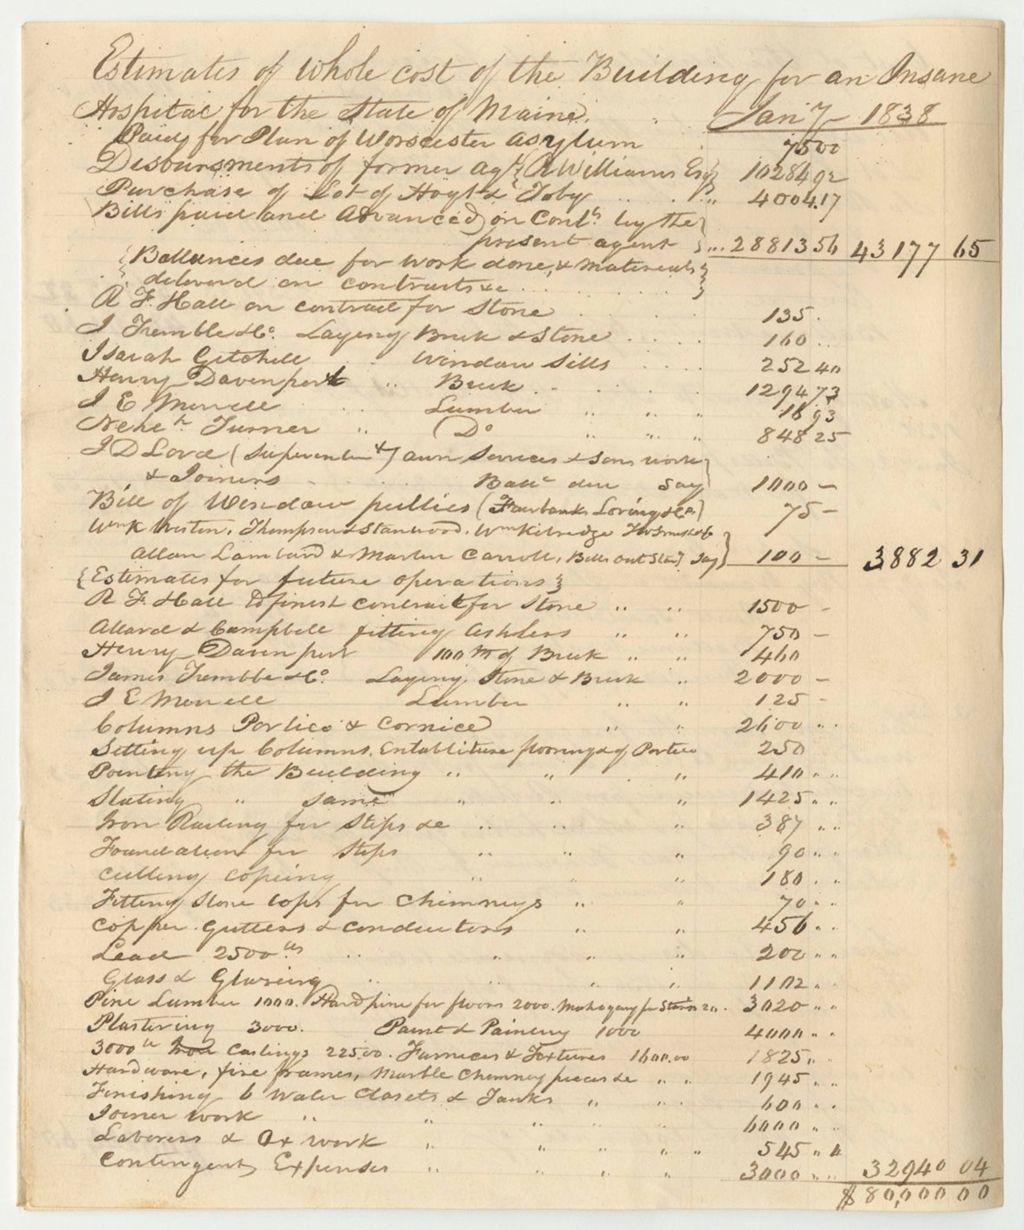 Estimates of whole cost of the Building for an Insane
Hospital for the State of Maine. Jan 7 - 1838
Paid for Plan of Worscester asylum 7500
Disbursments of former agt R Williams Esq 1028492
Purchase of Lot of Hoyt & Toby " 400417
Bills paid and Advanced on Cont. by the
present agent ... 2881356 43177 65
{Ballances due for work done, & materials}
delivered on contracts &c
R F. Hall on contract for Stone 135.
J Tremble & Co. Laying Brick & Stone 160 ..
Isarah Gitchell Window Sills 252 40
Henry Davenport " Brick 1294 73
J E Merrell Lumber " " " 16 93
Nehe h Turner " (Do " " " 848 25
J D Lord (Superenten t) own Services & Sons work
& Joiners Balle due Say 1000 -
Bill of Window pullies (Fairbanks, Loring & Co) 75 -
Wm K Weston, Thompson & Stanwood, Wm Kilredge
Allan Lambard & Martin Carroll, Bills Out Stand Say 100 - 3882 31
{Estimates for future operations}
R F. Hall to finish contract for Stone " " 1500 -
Allard & Campbell fitting Ashlers " " 750 -
Henry Davenport 100 M of Brick " " 460
James Tremble & Co. Laying Stone & Brick " 2000 -
J E Merrell Lumber " " 125 -
Columns Portico & Cornice " " 2600 ..
Setting up Columns, Entabliture flooring &c of Portico 250
Pointing the Building " " " 410 ..
Slating " same " " " 1425 ..
Iron Railing for Steps &c " " " 387 ..
Foundation for Steps " " " 90 ..
Cutting Copeing " " 180 ..
Fitting Stone tops for Chimneys " " 70 ..
Copper Gutters & Conductors " " 456 ..
Lead 2500 lbs " " " 200 ..
Glass & Glazing " " " 1102 ..
Pine Lumber 1000. Hard pine for floors 2000. Mahogany for Stairs 20. 3020 ..
Plastering 3000. Paint & Painting 1000 4000 ..
3000 lb Iron Castings 225.00. Furnices & Fixtures 1600.00 1825 ..
Hardware, fire frames, Marble Chimney pieces &c " " 1945 ..
Finishing 6 Water Closets & Tanks " " " 600 ..
Joiner work " " " " 6000 ..
Laborers & Ox work " " " " 545 ..
Contingent Expenses " " " " 3000 .. 32940 04
$80,000 00